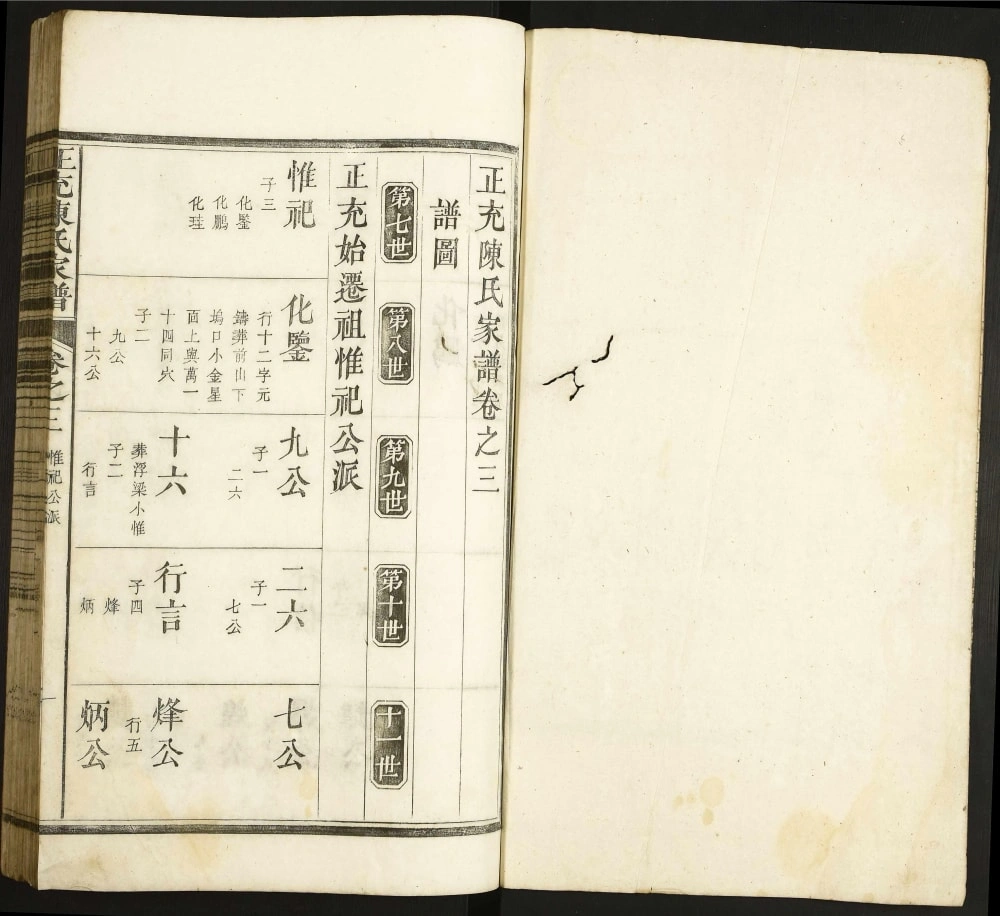 正充陳氏家譜卷之三
譜圖
第七世
第八世
第九世
第十世
十一世
正充始遷祖惟祀公派
惟祀
子三
化鑒
化鵬
化珪
化鑒
行十二字元
鑄葬前山下
塢口小金星
面上與萬一
十四同穴
子二
九公
十六公
九公
子一
二六
十六
葬浮梁小惟
子二
行言
二六
子一
七公
行言
子四
烽
炳
七公
烽公
行五
炳公
正充陳氏家譜
卷之三
惟祀公派